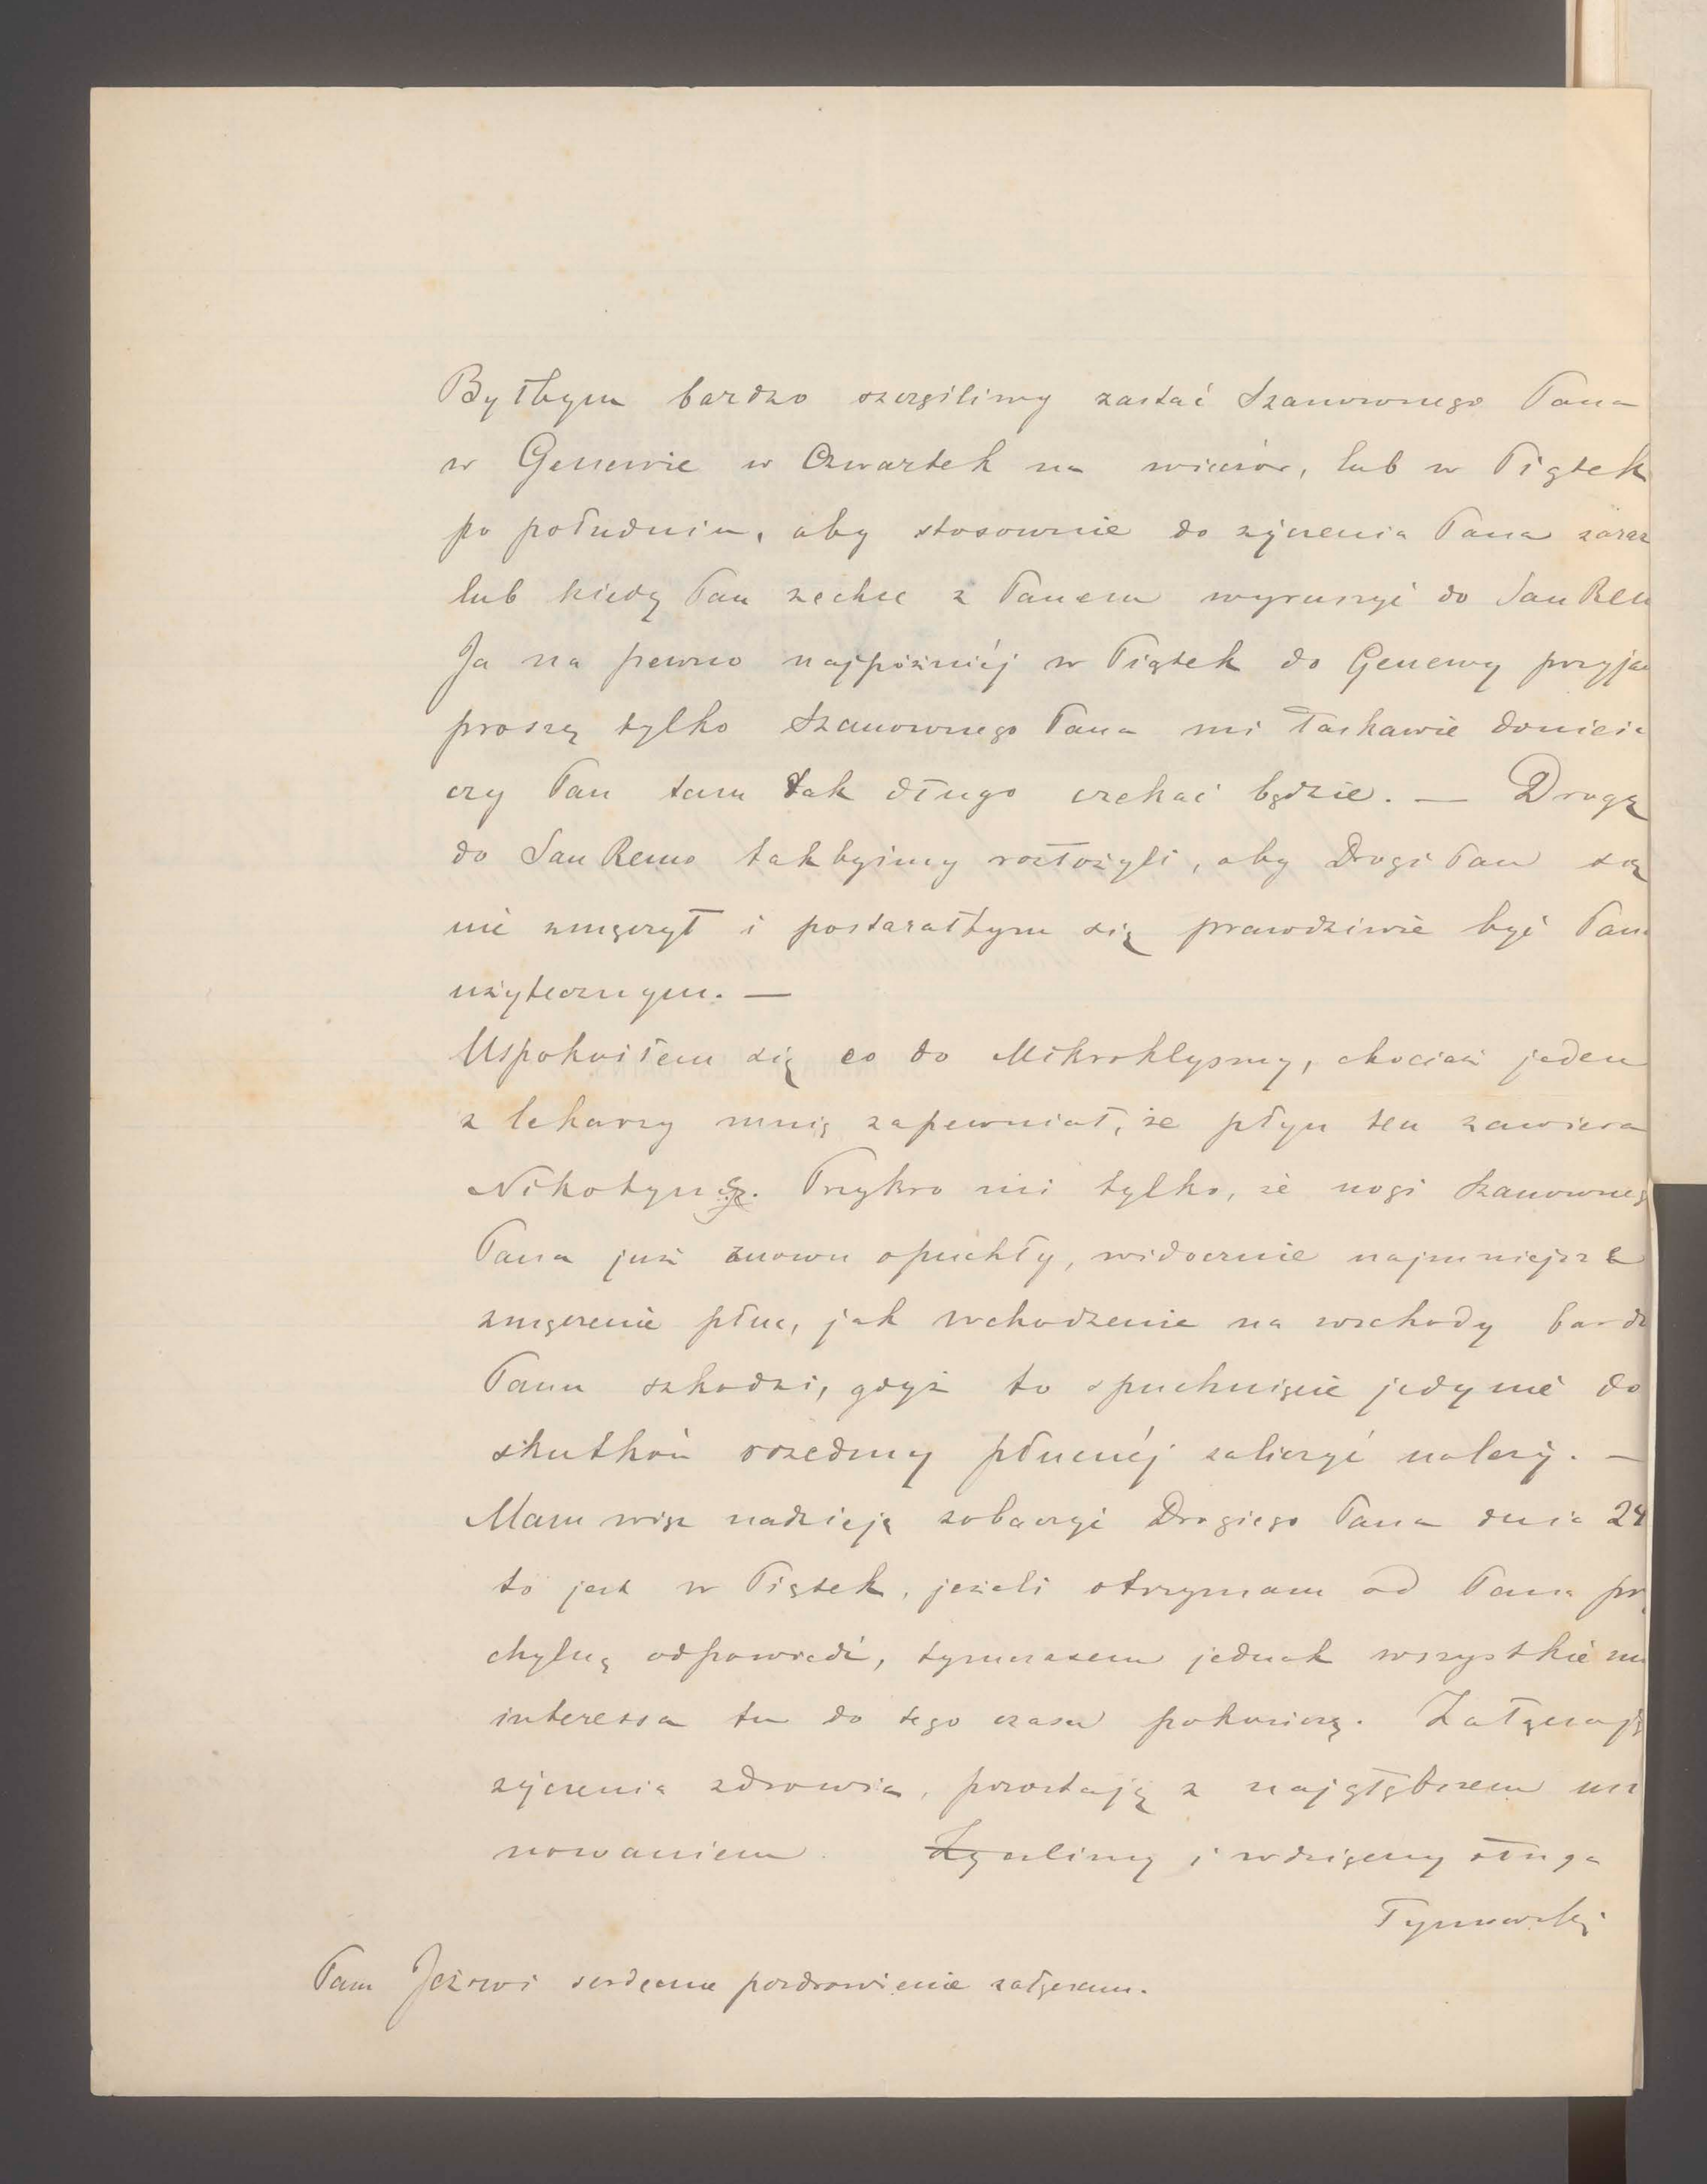 Byłbym bardzo szczęśliwy zastać Szanownego Pana
w Genewie w Czwartek na wieczór, lub w Piątek
po południu, aby stosownie do życzenia Pana zaraz
lub kiedy Pan zechce z Panem wyruszyć do San Rem
Ja na pewno najpóźniéj w Piątek do Genewy przyja
proszę tylko Szanownego Pana mi łaskawie donieść
czy Pan tam tak długo czekać będzie. — Drogę
do San Remo takbyśmy rozłożyli, aby Drogi Pan się
nie zmęczył i postarałbym się prawdziwie być Panu
użytecznym. —
Uspokoiłem się co do Mikroklyzmy, chociaż jeden
z lekarzy mnię zapewniał, że płyn ten zawiera
Nikotynę. Przykro mi tylko, że nogi Szanowneg
Pana już znowu opuchły, widocznie najmniejsze
zmęczenie płuc, jak wchodzenie na wschody bardz
Panu szkodzi, gdyż to opuchnięcie jedynie do
skutków rozedmy płucnéj zaliczyć należy. —
Mam więc nadzieję zobaczyć Drogiego Pana dnia 24
to jest w Piątek, jeżeli otrzymam od Pana prz
chylną odpowiedź, tymczasem jednak wszystkie mo
interessa tu do tego czasu pokończę. Załączając
życzenia zdrowia, pozostaję z najgłębszem usza
nowaniem Życzliwy i wdzięczny sługa
Tymowski
Panu Jeżowi serdeczne pozdrowienie załączam.